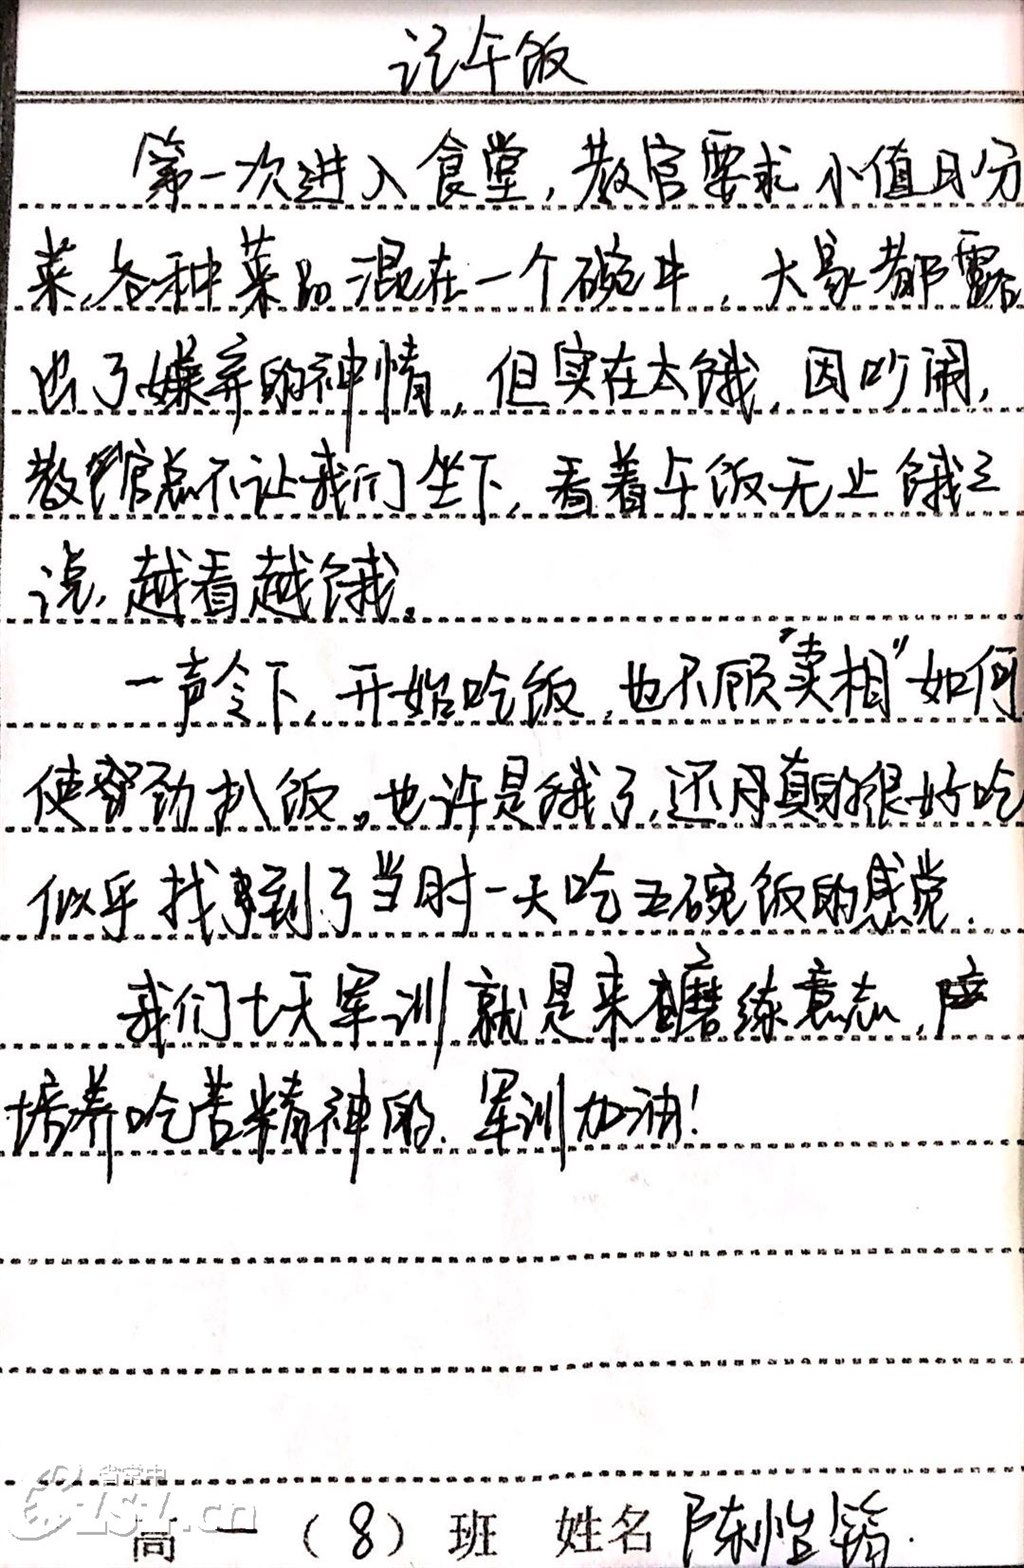 记午饭
第一次进入食堂，教官要求小值日分
菜，各种菜品混在一个碗中，大家都露
出了嫌弃的神情，但实在太饿，因吵闹，
教官总不让我们坐下，看着午饭无止饿之
说，越看越饿。
一声令下，开始吃饭，也不顾“卖相”如何
使劲扒饭。也许是饿了，还用真的很好吃
似乎找到了当时一天吃五碗饭的感觉.
我们七天军训就是来磨练意志，
培养吃苦精神的.军训加油！
省常中
CSZ.cn
高一（8）班 姓名 陈怡